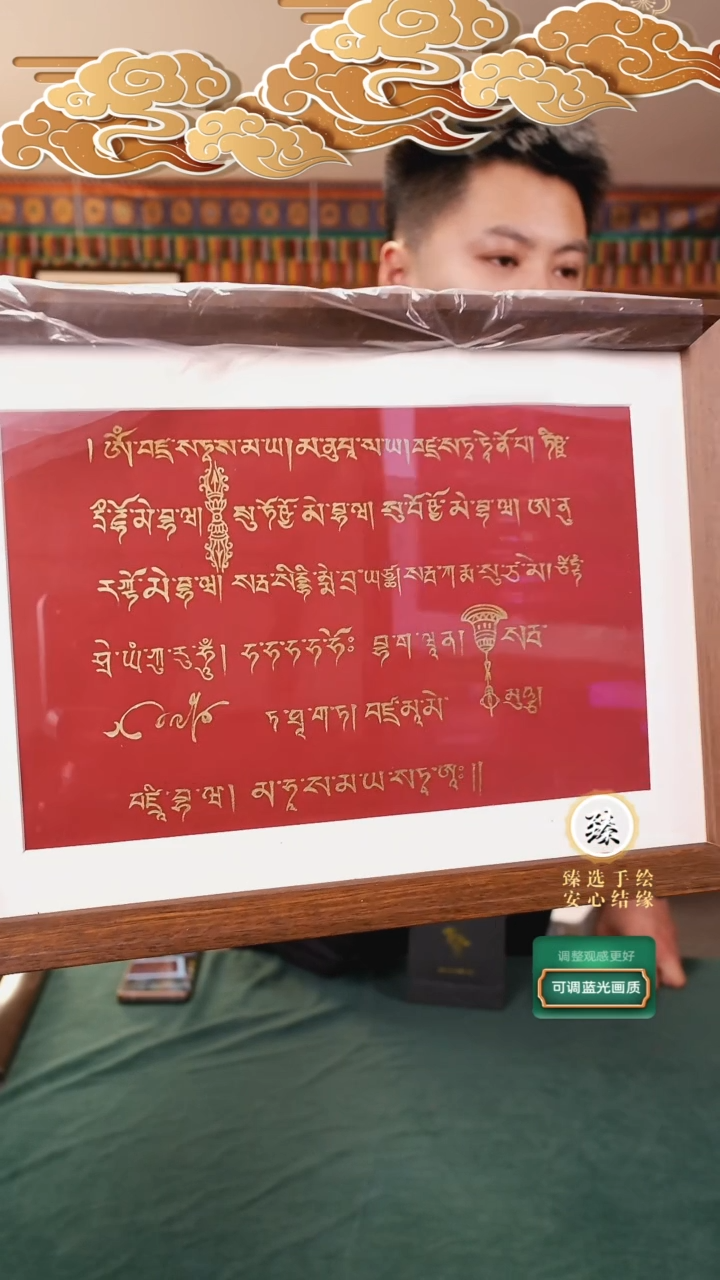 ། ཨོཾ་བཛྲ་སཏྭ་ས་མ་ཡ། མ་ནུ་པཱ་ལ་ཡ། བཛྲ་སཏྭ་ཏྭེ་ནོ་པ། ཏིཥྛ
དྲྀ་ཌྷོ་མེ་བྷ་ཝ། སུ་ཏོ་ཥྱོ་མེ་བྷ་ཝ། སུ་པོ་ཥྱོ་མེ་བྷ་ཝ། ཨ་ནུ
རཀྟོ་མེ་བྷ་ཝ། སརྦ་སིདྡྷི་མྨེ་པྲ་ཡ་ཙྪ། སརྦ་ཀརྨ་སུ་ཙ་མེ། ཙིཏྟཾ
ཤྲེ་ཡཾ་ཀུ་རུ་ཧཱུྃ། ཧ་ཧ་ཧ་ཧ་ཧོཿ བྷ་ག་ཝཱན། སརྦ་
ཏ་ཐཱ་ག་ཏ། བཛྲ་མཱ་མེ་ མུཉྩ།
བཛྲཱི་བྷ་ཝ། མ་ཧཱ་ས་མ་ཡ་སཏྭ་ཨཱཿ །།
臻
臻选手绘
安心结缘
调整观感更好
可调蓝光画质